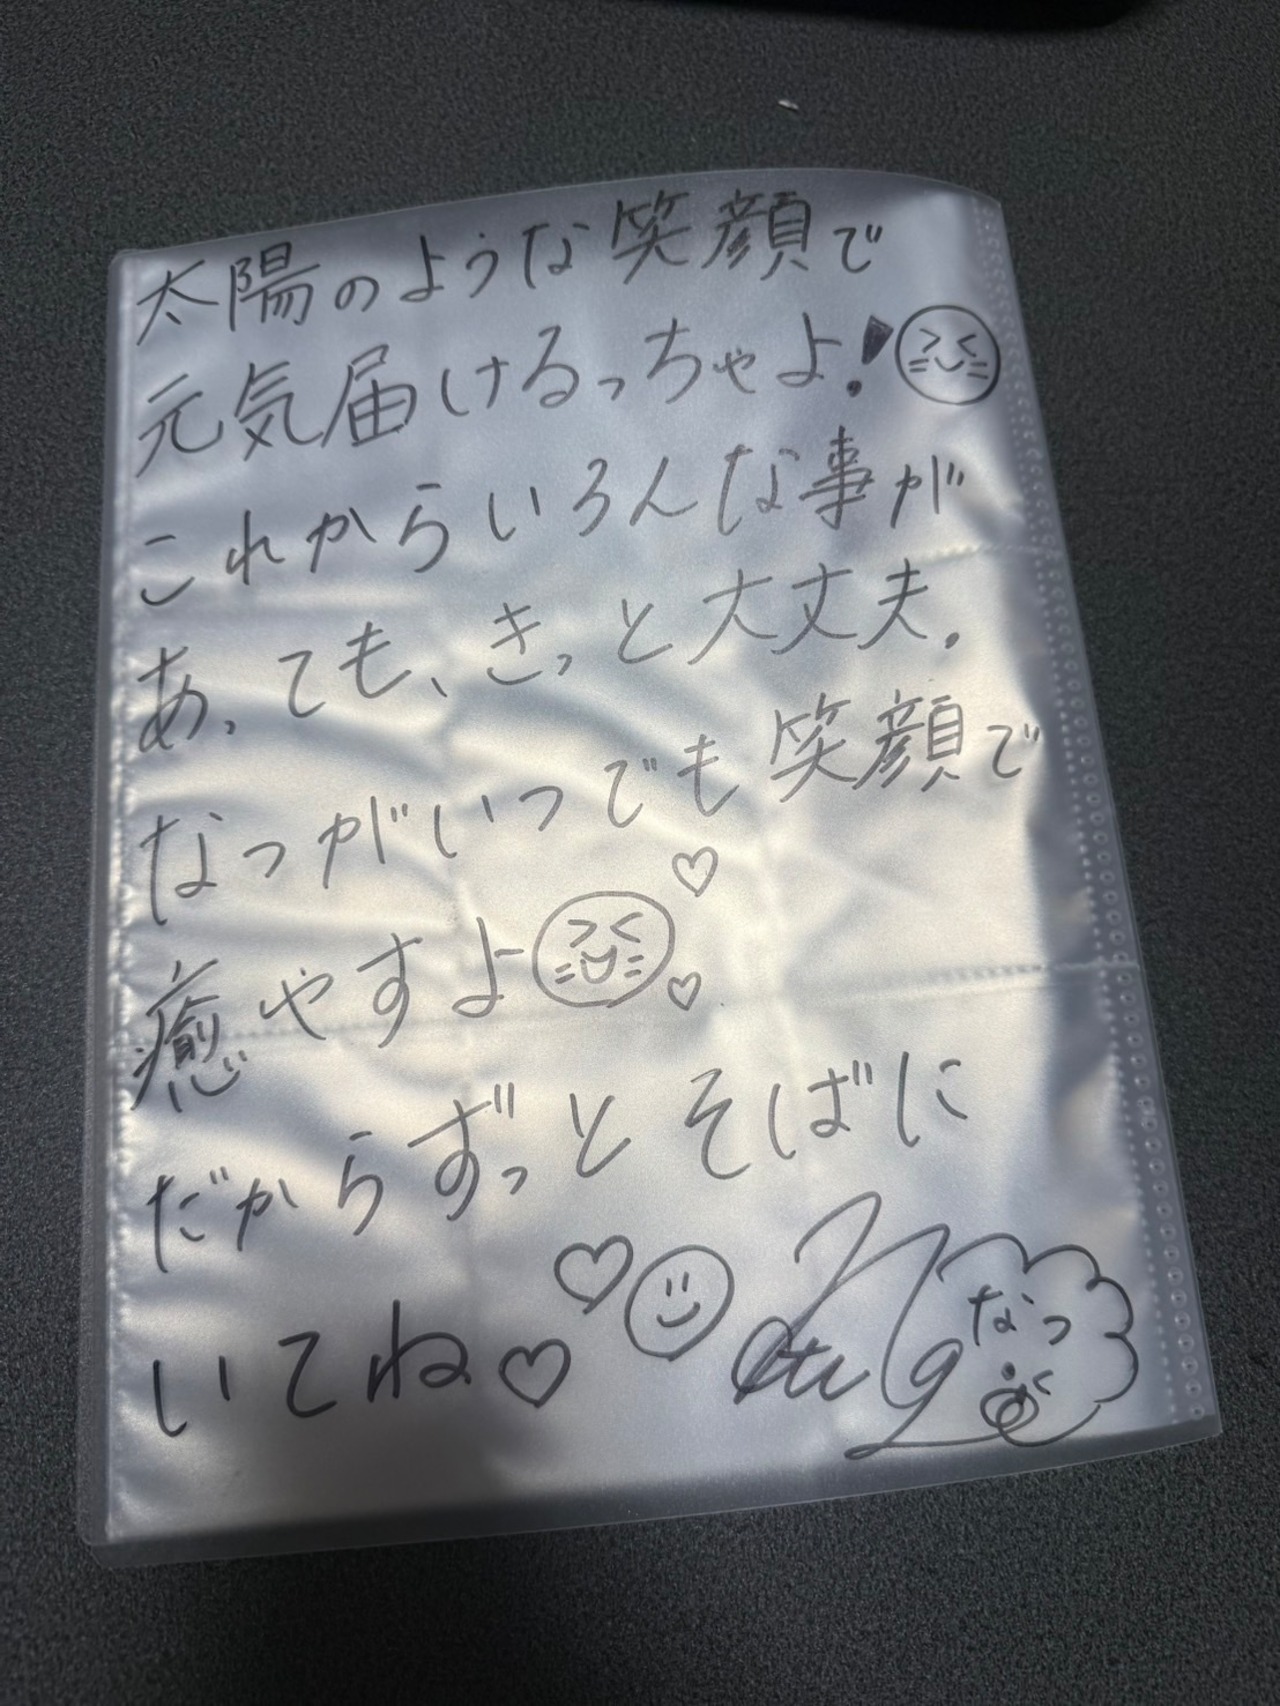 太陽のような笑顔で
元気届けるっちゃよ!
これからいろんな事が
あっても、きっと大丈夫.
なつがいつでも笑顔で
癒やすよ
だからずっとそばに
いてね♡
なつ